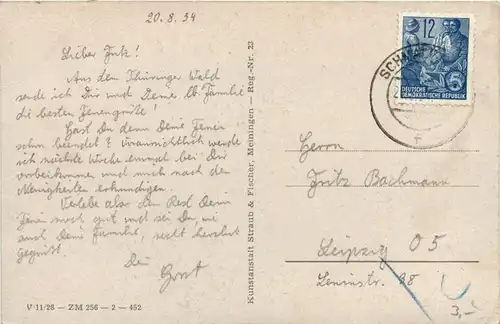 20. 8. 54
Lieber Fritz!
Aus dem Thüringer Wald
sende ich Dir und Deine lb. Familie
die besten Feriengrüße!
Hast Du denn Deine Ferien
schon beendet? Voraussichtlich werde
ich nächste Woche einmal bei Dir
vorbeikommen und mich nach den
Neuigkeiten erkundigen.
Verlebe also den Rest Deine
Ferien noch gut und sei Du, wie
auch Deine Familie, recht herzlich
gegrüßt.
Dein Horst
V 11/28 — ZM 256 — 2 — 452
Kunstanstalt Straub & Fischer, Meiningen — Reg.-Nr. 23
12
DEUTSCHE
DEMOKRATISCHE REPUBLIK
Herrn
Fritz Bachmann
Leipzig O 5
Leninstr.
3,-